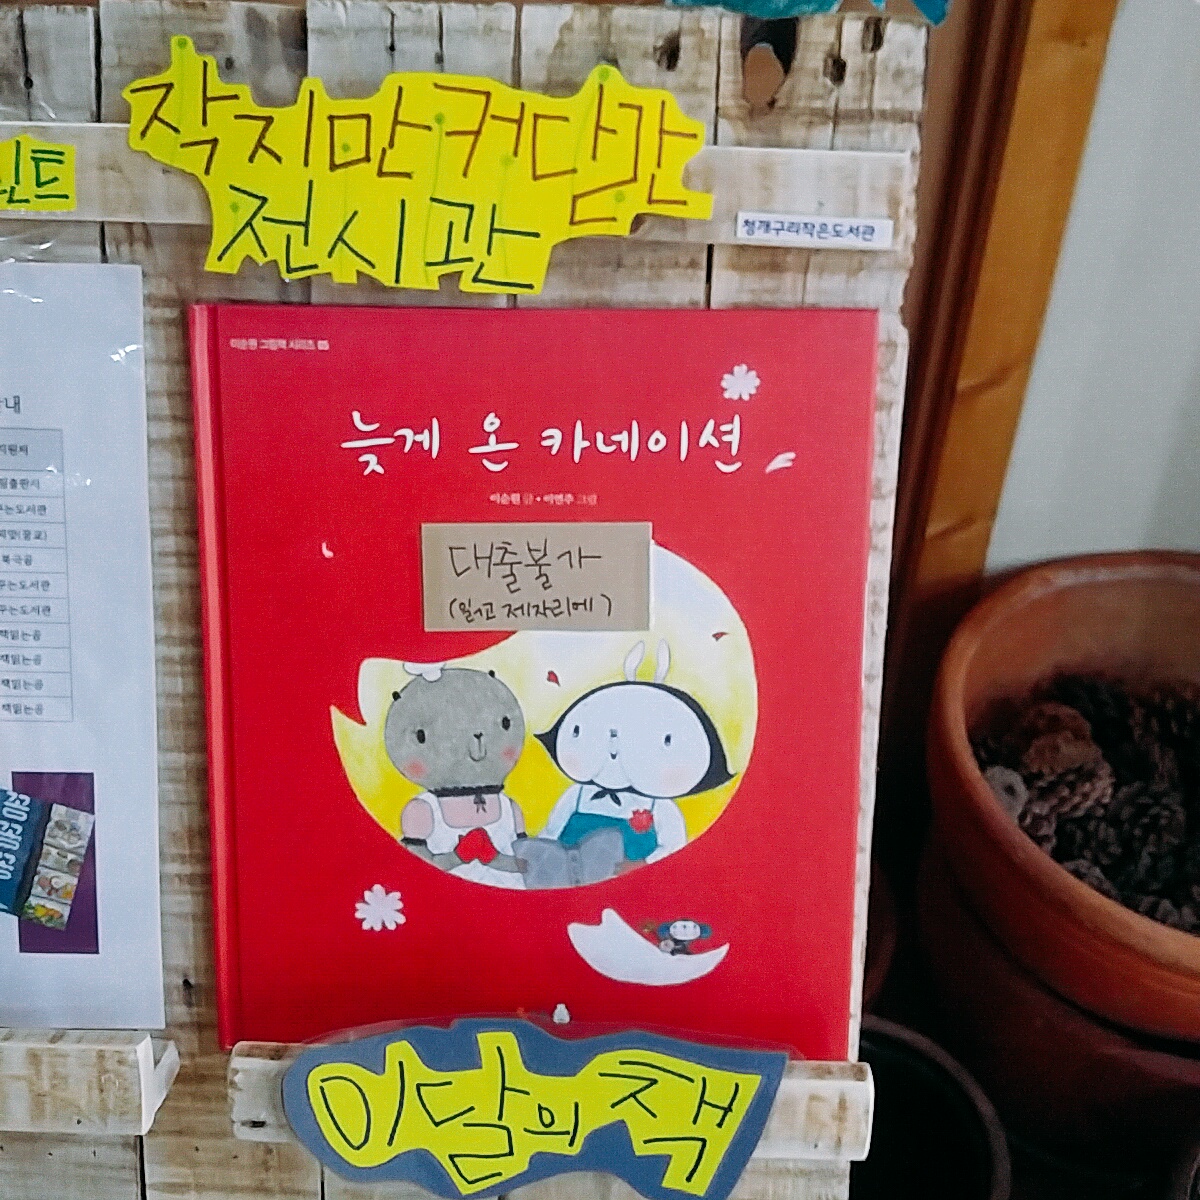 작지만 커다란
전시관
린트
청개구리작은도서관
이순원 그림책 시리즈 05
늦게 온 카네이션
이순원 글 • 이연주 그림
대출불가
(읽고 제자리에)
이달의 책
내
출판사
는도서관
북극곰
꾸는도서관
꾸는도서관
책읽는곰
책읽는곰
책읽는곰
책읽는곰